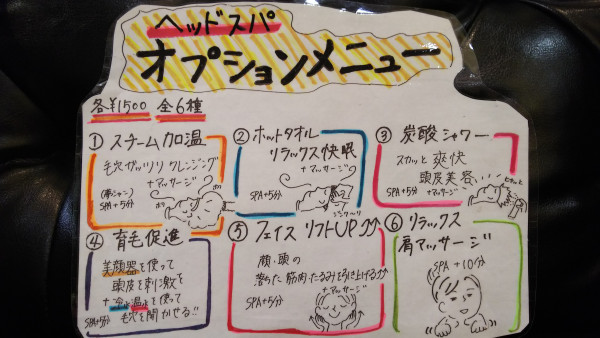 ヘッドスパ
オプションメニュー
各¥1500 全6種
① スチーム加温
毛穴ガッツリ クレンジング
+マッサージ
SPA+5分
② ホットタオル
リラックス快眠
+マッサージ
SPA+5分
③ 炭酸シャワー
スカッと爽快
頭皮美容
SPA+5分
+マッサージ
④ 育毛促進
美顔器を使って
頭皮を刺激を
+冷と温を使って
毛穴を開かせる!!
SPA+5分
⑤ フェイス リフトUP⤴⤴
顔・頭の
落ちた筋肉・たるみを引き上げる⤴⤴
+マッサージ
SPA+5分
⑥ リラックス
肩マッサージ
SPA+10分